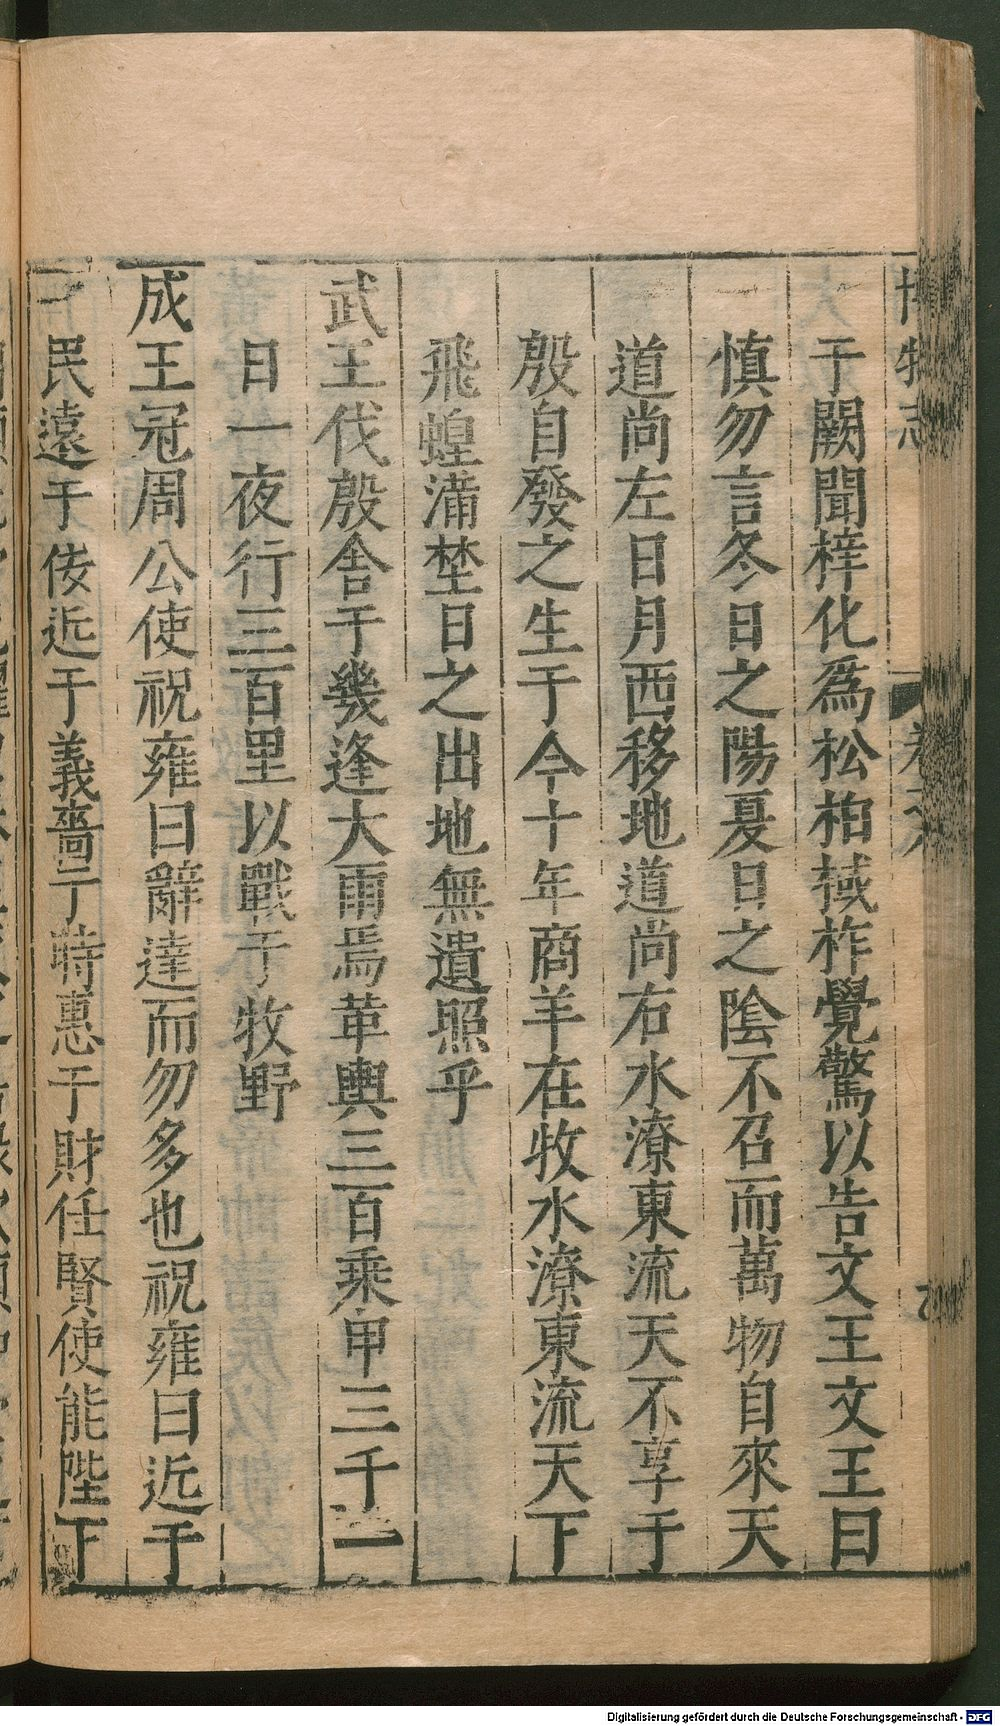 博物志 卷之八
于闕聞梓化爲松柏棫柞覺驚以告文王文王曰
慎勿言冬日之陽夏日之陰不召而萬物自來天
道尚左日月西移地道尚右水潦東流天不享于
殷自發之生于今十年商羊在牧水潦東流天下
飛蝗滿埜日之出地無遺照乎
武王伐殷舍于幾逢大雨焉革輿三百乘甲三千一
日一夜行三百里以戰于牧野
成王冠周公使祝雍曰辭達而勿多也祝雍曰近于
民遠于佞近于義嗇于時惠于財任賢使能陛下
Digitalisierung gefördert durch die Deutsche Forschungsgemeinschaft - DFG